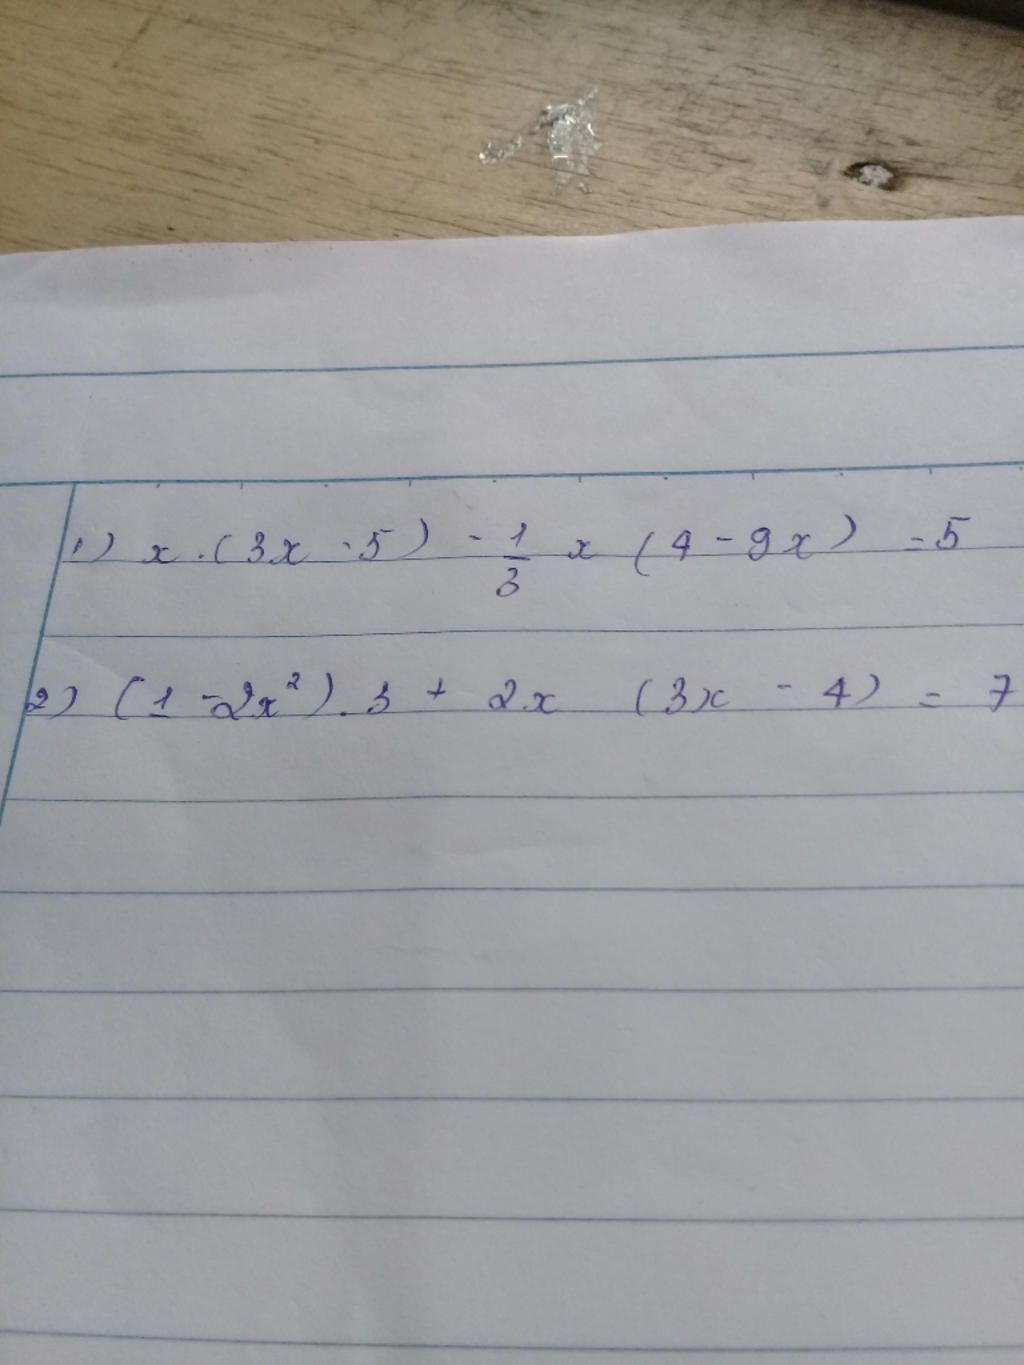 1) x.(3x - 5) - 1/3 x (4 - 9x) = 5
2) (1 - 2x²).3 + 2x (3x - 4) = 7